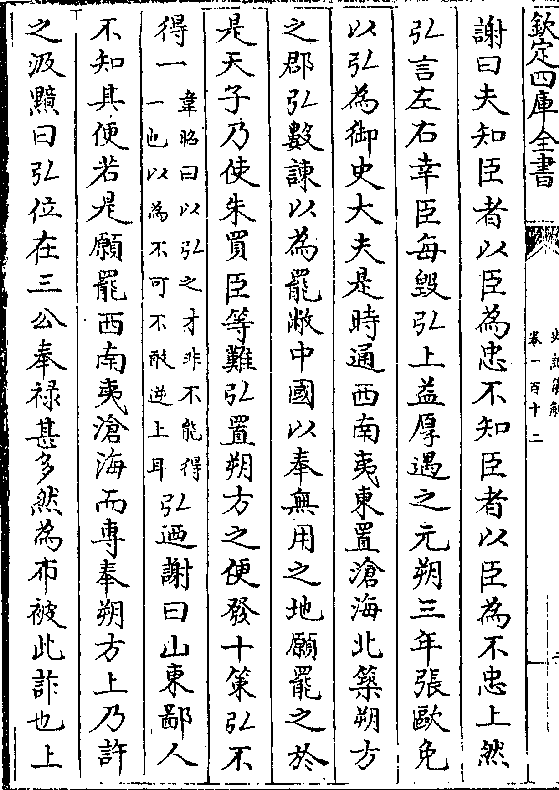 欽定四庫全書
史記集解
卷一百十二
謝曰夫知臣者以臣為忠不知臣者以臣為不忠上然
弘言左右幸臣每毀弘上益厚遇之元朔三年張歐免
以弘為御史大夫是時通西南夷東置滄海北築朔方
之郡弘數諫以為罷敝中國以奉無用之地願罷之於
是天子乃使朱買臣等難弘置朔方之便發十策弘不
得一韋昭曰以弘之才非不能得一也以為不可不敢逆上耳弘迺謝曰山東鄙人
不知其便若是願罷西南夷滄海而專奉朔方上乃許
之汲黯曰弘位在三公奉祿甚多然為布被此詐也上